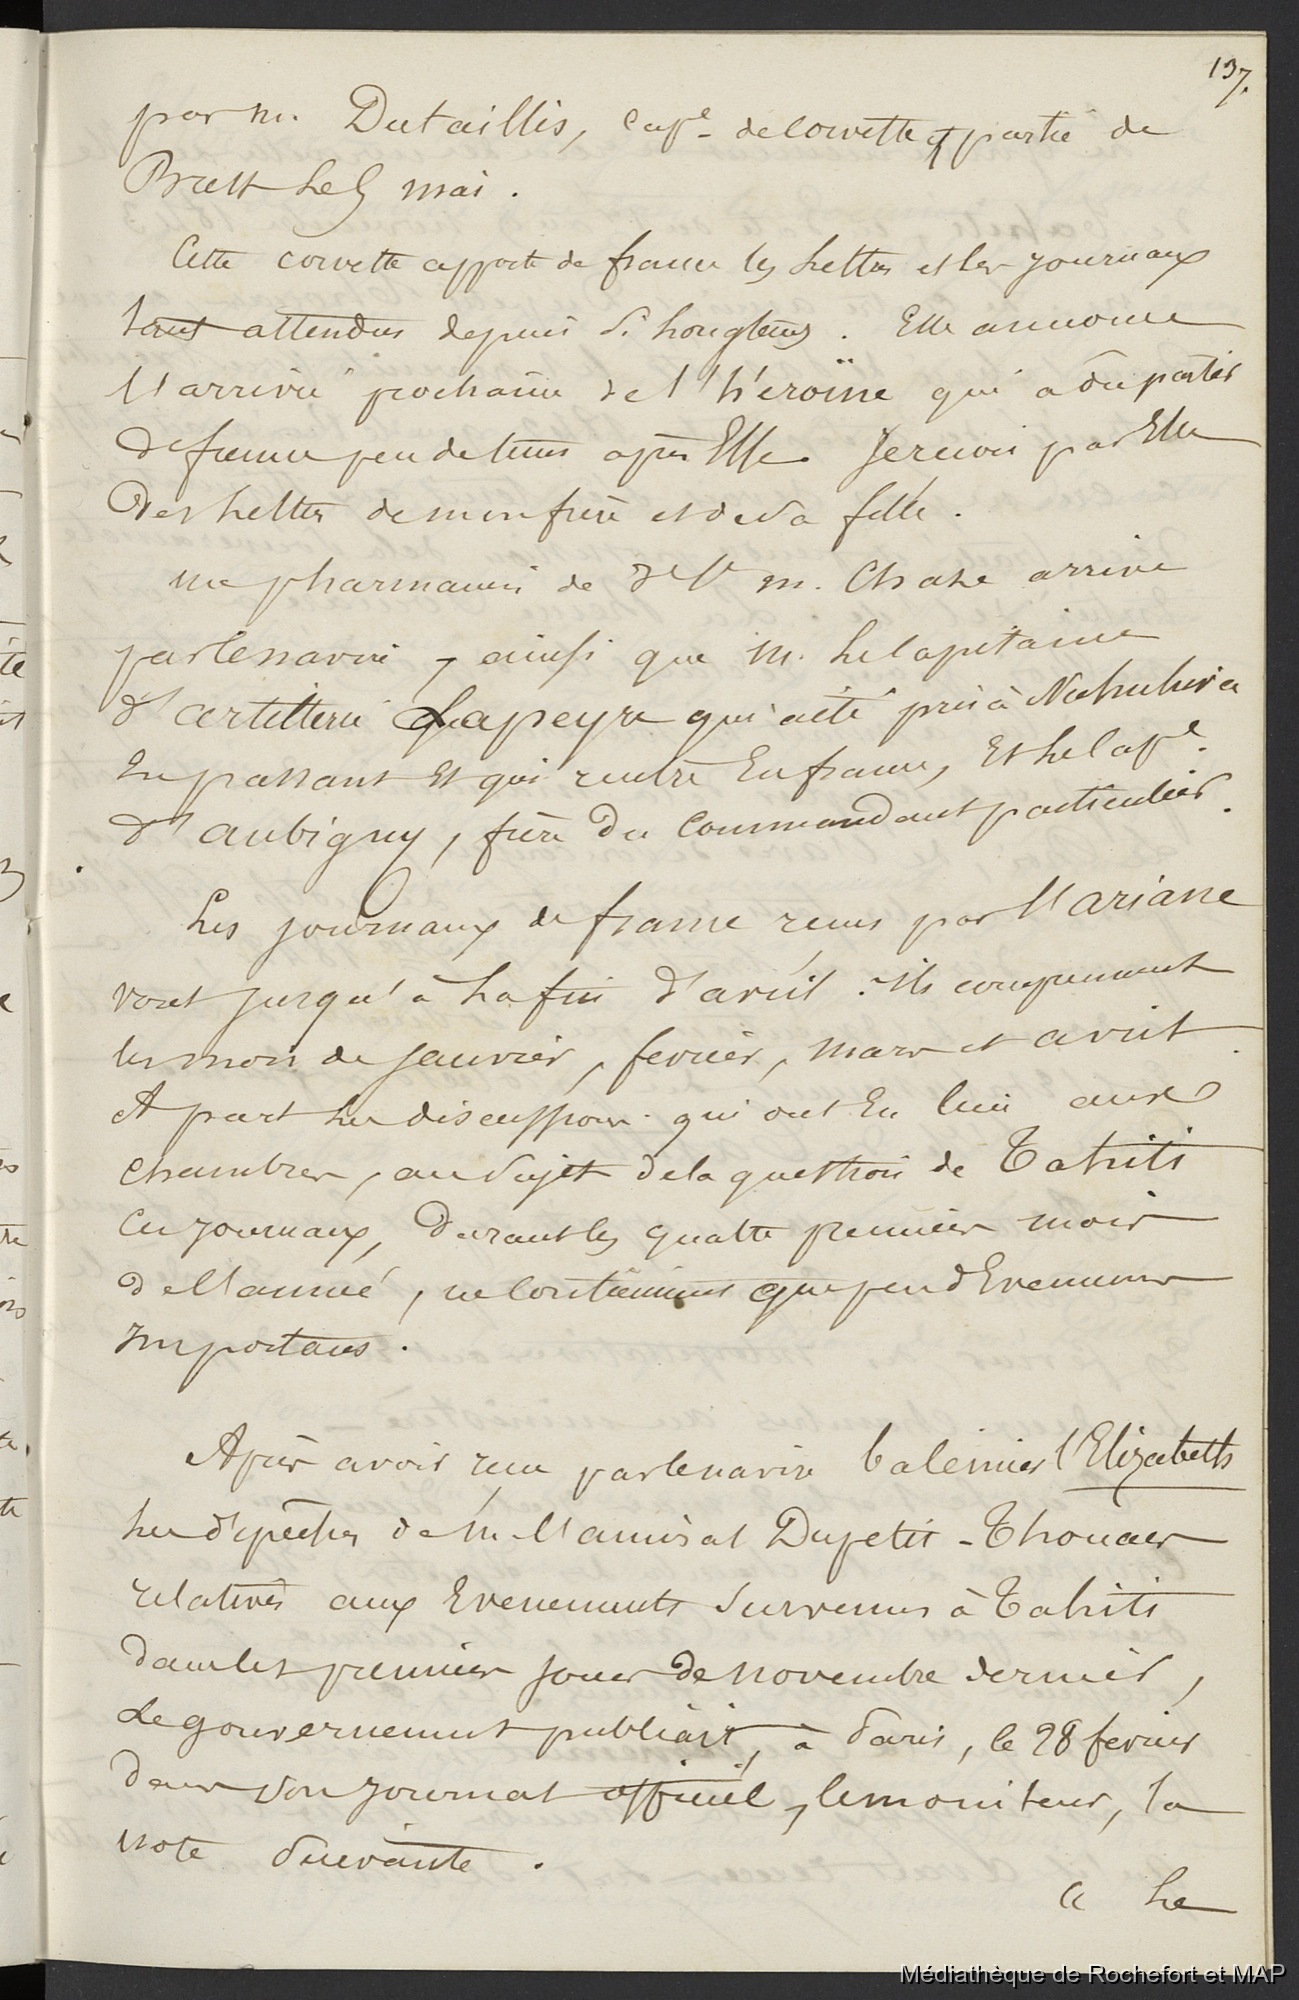 137.
par m. Dutaillis, cape. de corvette, partie de
Brest le 9 mai.
Cette corvette apporte de france les lettres et les journaux
tant attendus depuis si longtems. Elle annonce
l'arrivée prochaine de l'héroïne qui a dû partir
de france peu de tems après Elle. Je reçois par Elle
des lettres de mon frère et de sa fille.
un pharmacien de 3e Cl. m. Chaze arrive
par le navire, ainsi que M. le capitaine
d'artillerie Lapeyre qui a été pris à Nukuhiva
en passant et qui rentre En france, Et le Cape.
d'aubigny, frère du Commandant particulier.
Les journaux de france reçus par l'ariane
vont jusqu'à la fin d'avril. Ils comprennent
les mois de janvier, fevrier, mars et avril.
A part les discussions qui ont Eu lieu aux
chambres, au sujet de la question de Tahiti
ces journaux, durant les quatre premiers mois
de l'année, ne contiennent que peu d'Evenemens
importans.
Après avoir reçu par le navire baleinier l'Elizabeth
les dépêches de M. l'amiral Dupetit-Thouars
relatives aux Evenements survenus à Tahiti
dans les premiers jours de novembre dernier,
le gouvernement publiait, à Paris, le 28 fevrier
dans son journal officiel, le moniteur, la
note suivante.
« Le
Médiathèque de Rochefort et MAP